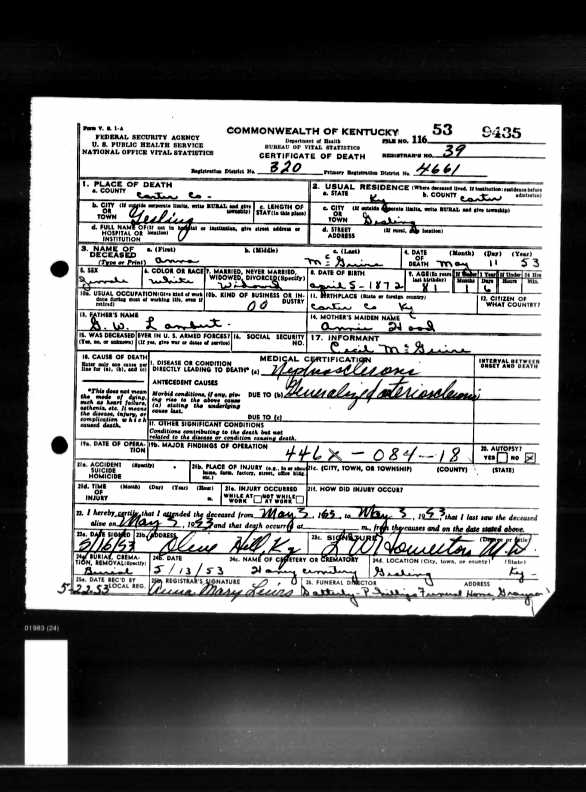 Form V. S. 1-A
FEDERAL SECURITY AGENCY
U. S. PUBLIC HEALTH SERVICE
NATIONAL OFFICE VITAL STATISTICS
COMMONWEALTH OF KENTUCKY
Department of Health
BUREAU OF VITAL STATISTICS
CERTIFICATE OF DEATH
FILE NO. 116 53 9435
REGISTRAR'S NO. 39
Registration District No. 320 Primary Registration District No. 4661
1. PLACE OF DEATH
a. COUNTY Carter Co.
2. USUAL RESIDENCE (Where deceased lived. If institution: residence before admission)
a. STATE Ky b. COUNTY Carter
b. CITY (If outside corporate limits, write RURAL and give township)
OR TOWN
c. LENGTH OF STAY (in this place)
c. CITY (If outside corporate limits, write RURAL and give township)
OR TOWN
d. FULL NAME OF (If not in hospital or institution, give street address or location)
HOSPITAL OR INSTITUTION
d. STREET ADDRESS (If rural, give location)
3. NAME OF DECEASED (Type or Print)
a. (First) Anna b. (Middle) c. (Last) McGuire
4. DATE OF DEATH (Month) (Day) (Year) May 11 53
5. SEX Female
6. COLOR OR RACE White
7. MARRIED, NEVER MARRIED, WIDOWED, DIVORCED (Specify) Widowed
8. DATE OF BIRTH April 5-1872
9. AGE (In years last birthday) 81 If Under 1 Year Months 1 Days 6 If Under 24 Hrs Hours Min.
10a. USUAL OCCUPATION (Give kind of work done during most of working life, even if retired)
10b. KIND OF BUSINESS OR INDUSTRY 00
11. BIRTHPLACE (State or foreign country) Carter Co Ky
12. CITIZEN OF WHAT COUNTRY?
13. FATHER'S NAME G. W. Lambert
14. MOTHER'S MAIDEN NAME Annie Hood
15. WAS DECEASED EVER IN U. S. ARMED FORCES? (Yes, no, or unknown) (If yes, give war or dates of service)
16. SOCIAL SECURITY NO.
17. INFORMANT Cecil McGuire
18. CAUSE OF DEATH
Enter only one cause per line for (a), (b), and (c)
*This does not mean the mode of dying, such as heart failure, asthenia, etc. It means the disease, injury, or complication which caused death.
MEDICAL CERTIFICATION
INTERVAL BETWEEN ONSET AND DEATH
I. DISEASE OR CONDITION DIRECTLY LEADING TO DEATH* (a) Nephrosclerosis
ANTECEDENT CAUSES
Morbid conditions, if any, giving rise to the above cause (a) stating the underlying cause last.
DUE TO (b) Generalized arteriosclerosis
DUE TO (c)
II. OTHER SIGNIFICANT CONDITIONS
Conditions contributing to the death but not related to the disease or condition causing death.
19a. DATE OF OPERATION
19b. MAJOR FINDINGS OF OPERATION 446X-084-18
20. AUTOPSY? YES NO X
21a. ACCIDENT SUICIDE HOMICIDE (Specify)
21b. PLACE OF INJURY (e.g., in or about home, farm, factory, street, office bldg. etc.)
21c. (CITY, TOWN, OR TOWNSHIP) (COUNTY) (STATE)
21d. TIME OF INJURY (Month) (Day) (Year) (Hour) m.
21e. INJURY OCCURRED WHILE AT WORK NOT WHILE AT WORK
21f. HOW DID INJURY OCCUR?
22. I hereby certify that I attended the deceased from May 3, to May 3, 1953, that I last saw the deceased
alive on May 3, 1953 and that death occurred at m., from the causes and on the date stated above.
23a. DATE SIGNED 5/16/53
23b. ADDRESS Olive Hill, Ky
23c. SIGNATURE (Degree or title) M.D.
24a. BURIAL, CREMATION, REMOVAL (Specify) Burial
24b. DATE 5/13/53
24c. NAME OF CEMETERY OR CREMATORY cemetery
24d. LOCATION (City, town, or county) (State) Ky-
25a. DATE REC'D BY LOCAL REG. 5-22-53
25b. REGISTRAR'S SIGNATURE Anna Mary Lewis
26. FUNERAL DIRECTOR ADDRESS Phillips Funeral Home, Grayson
01983 (24)